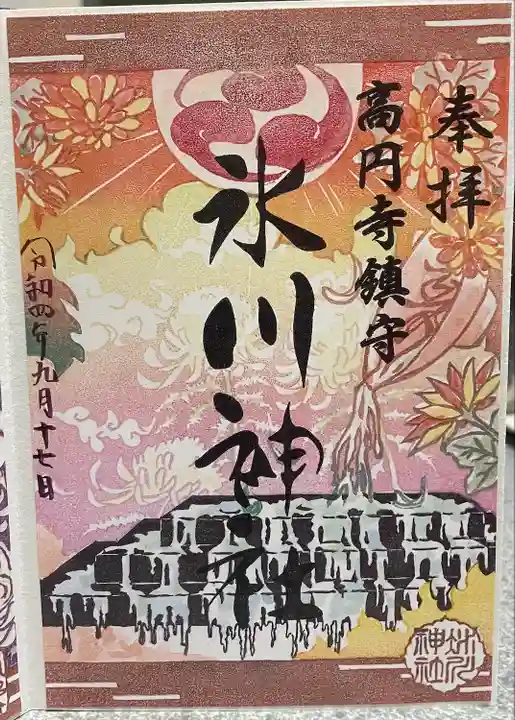 奉拝
高円寺鎮守
氷川神社
令和四年九月十七日
氷川
神社